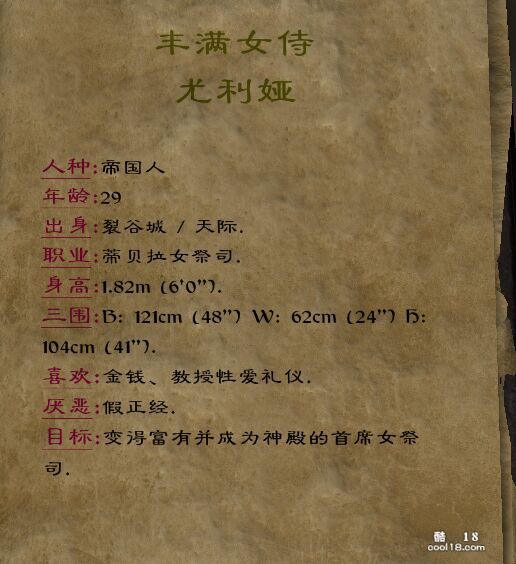 丰满女侍
尤利娅
人种:帝国人
年龄:29
出身:裂谷城 / 天际.
职业:蒂贝拉女祭司.
身高:1.82m (6'0").
三围:B: 121cm (48") W: 62cm (24") H:
104cm (41").
喜欢:金钱、教授性爱礼仪.
厌恶:假正经.
目标:变得富有并成为神殿的首席女祭
司.
酷 18
cool18.com